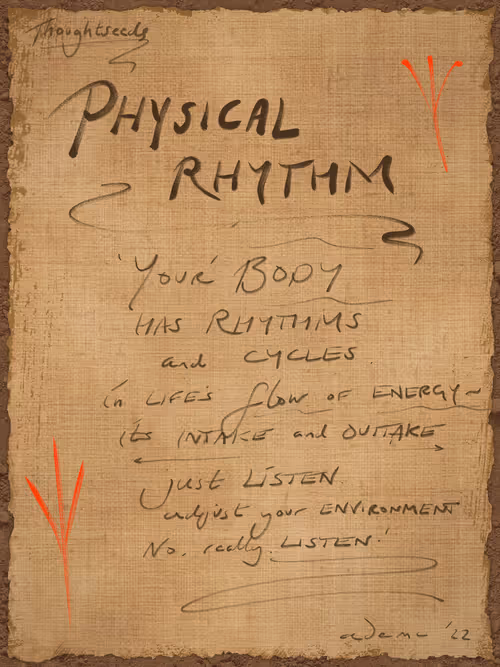 Thoughtseeds
PHYSICAL
RHYTHM
'Your' BODY
HAS RHYTHMS
and CYCLES
in LIFE'S flow OF ENERGY~
its INTAKE and OUTTAKE
just LISTEN
adjust your ENVIRONMENT
No, really, LISTEN!
adam '22